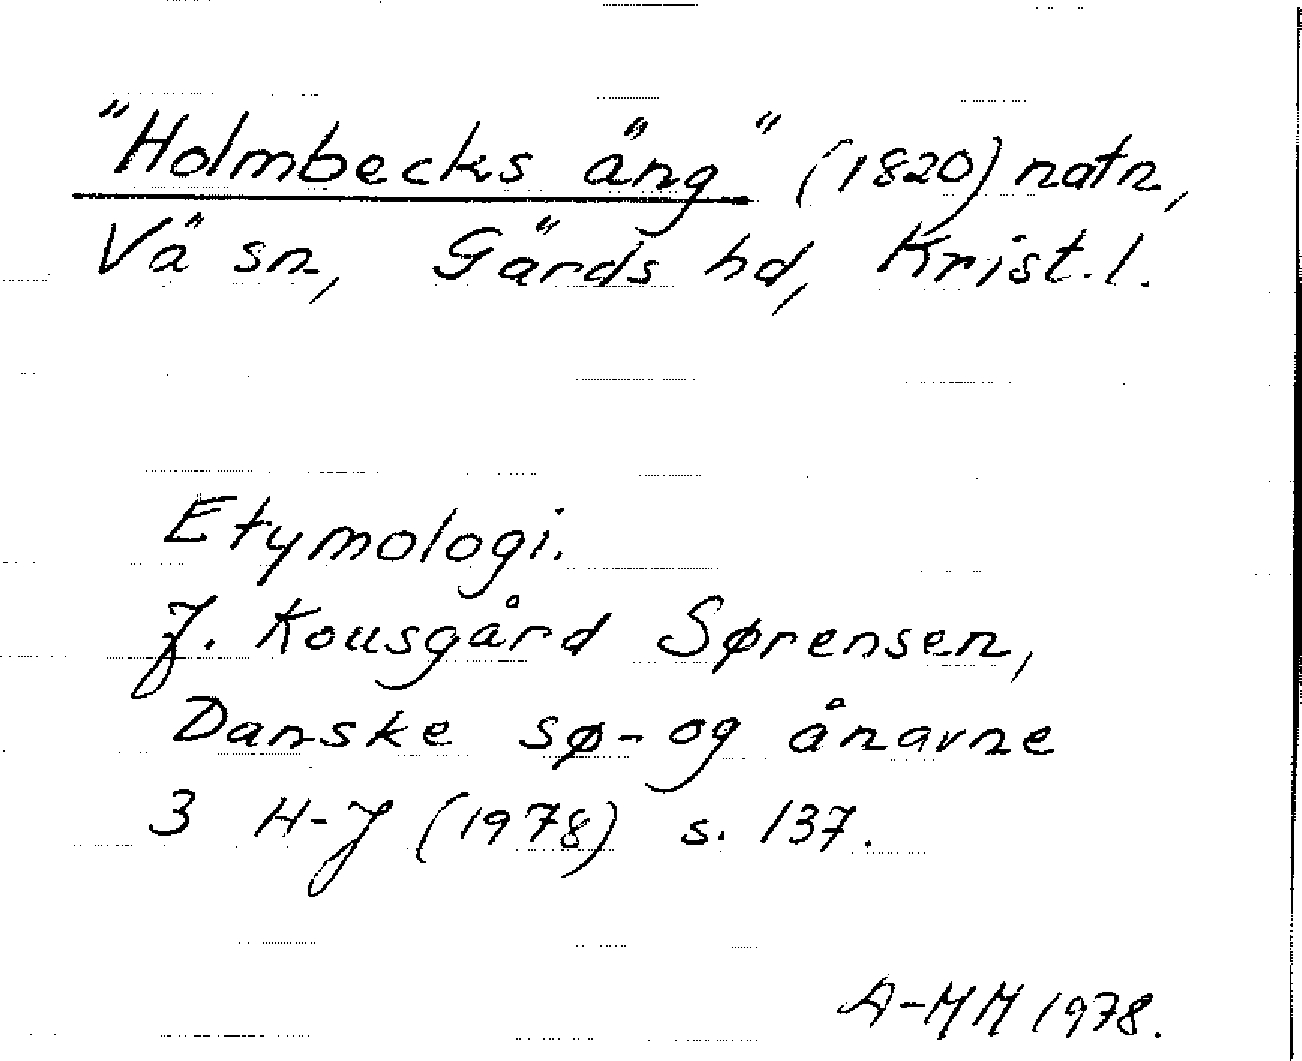 "Holmbecks äng" (1820) natn,
Vä sn, Gärds hd, Krist. l.
Etymologi.
J. Kousgård Sørensen,
Danske sø- og ånavne
3 H-J (1978) s. 137.
A-MM 1978.